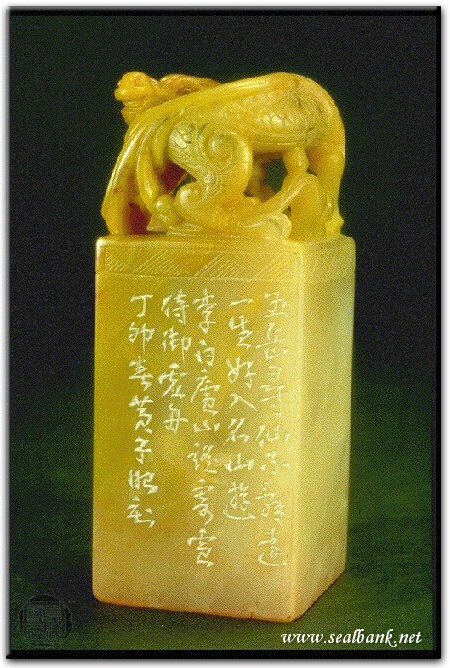 五岳尋仙不辭遠
一生好入名山遊
李白廬山謠寄盧
侍御虛舟
丁卯春黃子
www.sealbank.net